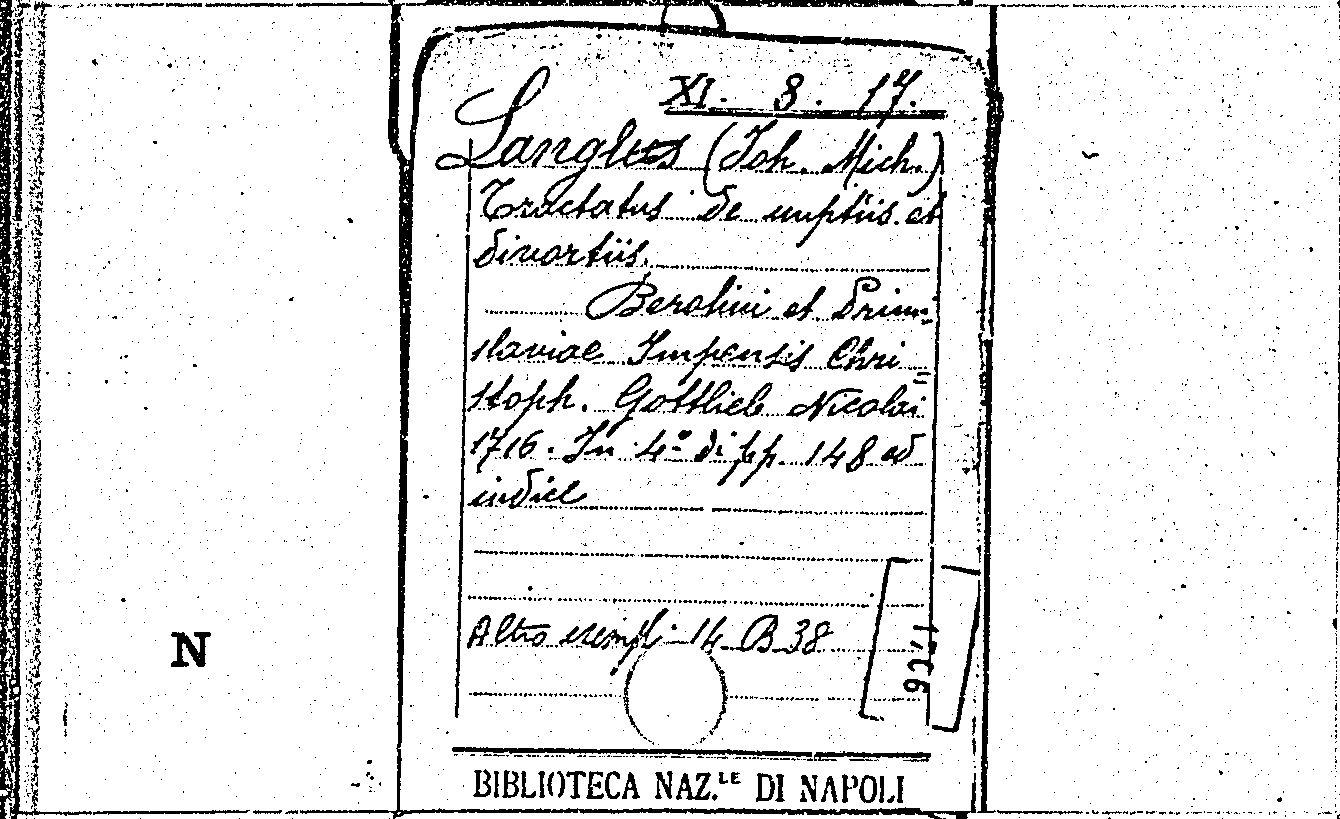 XI. 8. 17.
Langius (Joh. Mich.)
Tractatus de nuptiis et
divortiis.
Berolini et Prim-
slaviae Impensis Chri=
stoph. Gottlieb Nicolai
1716. In 4º di pp. 148 ed
indice
Altro esempl. 14 B 38
N
BIBLIOTECA NAZ.LE DI NAPOLI